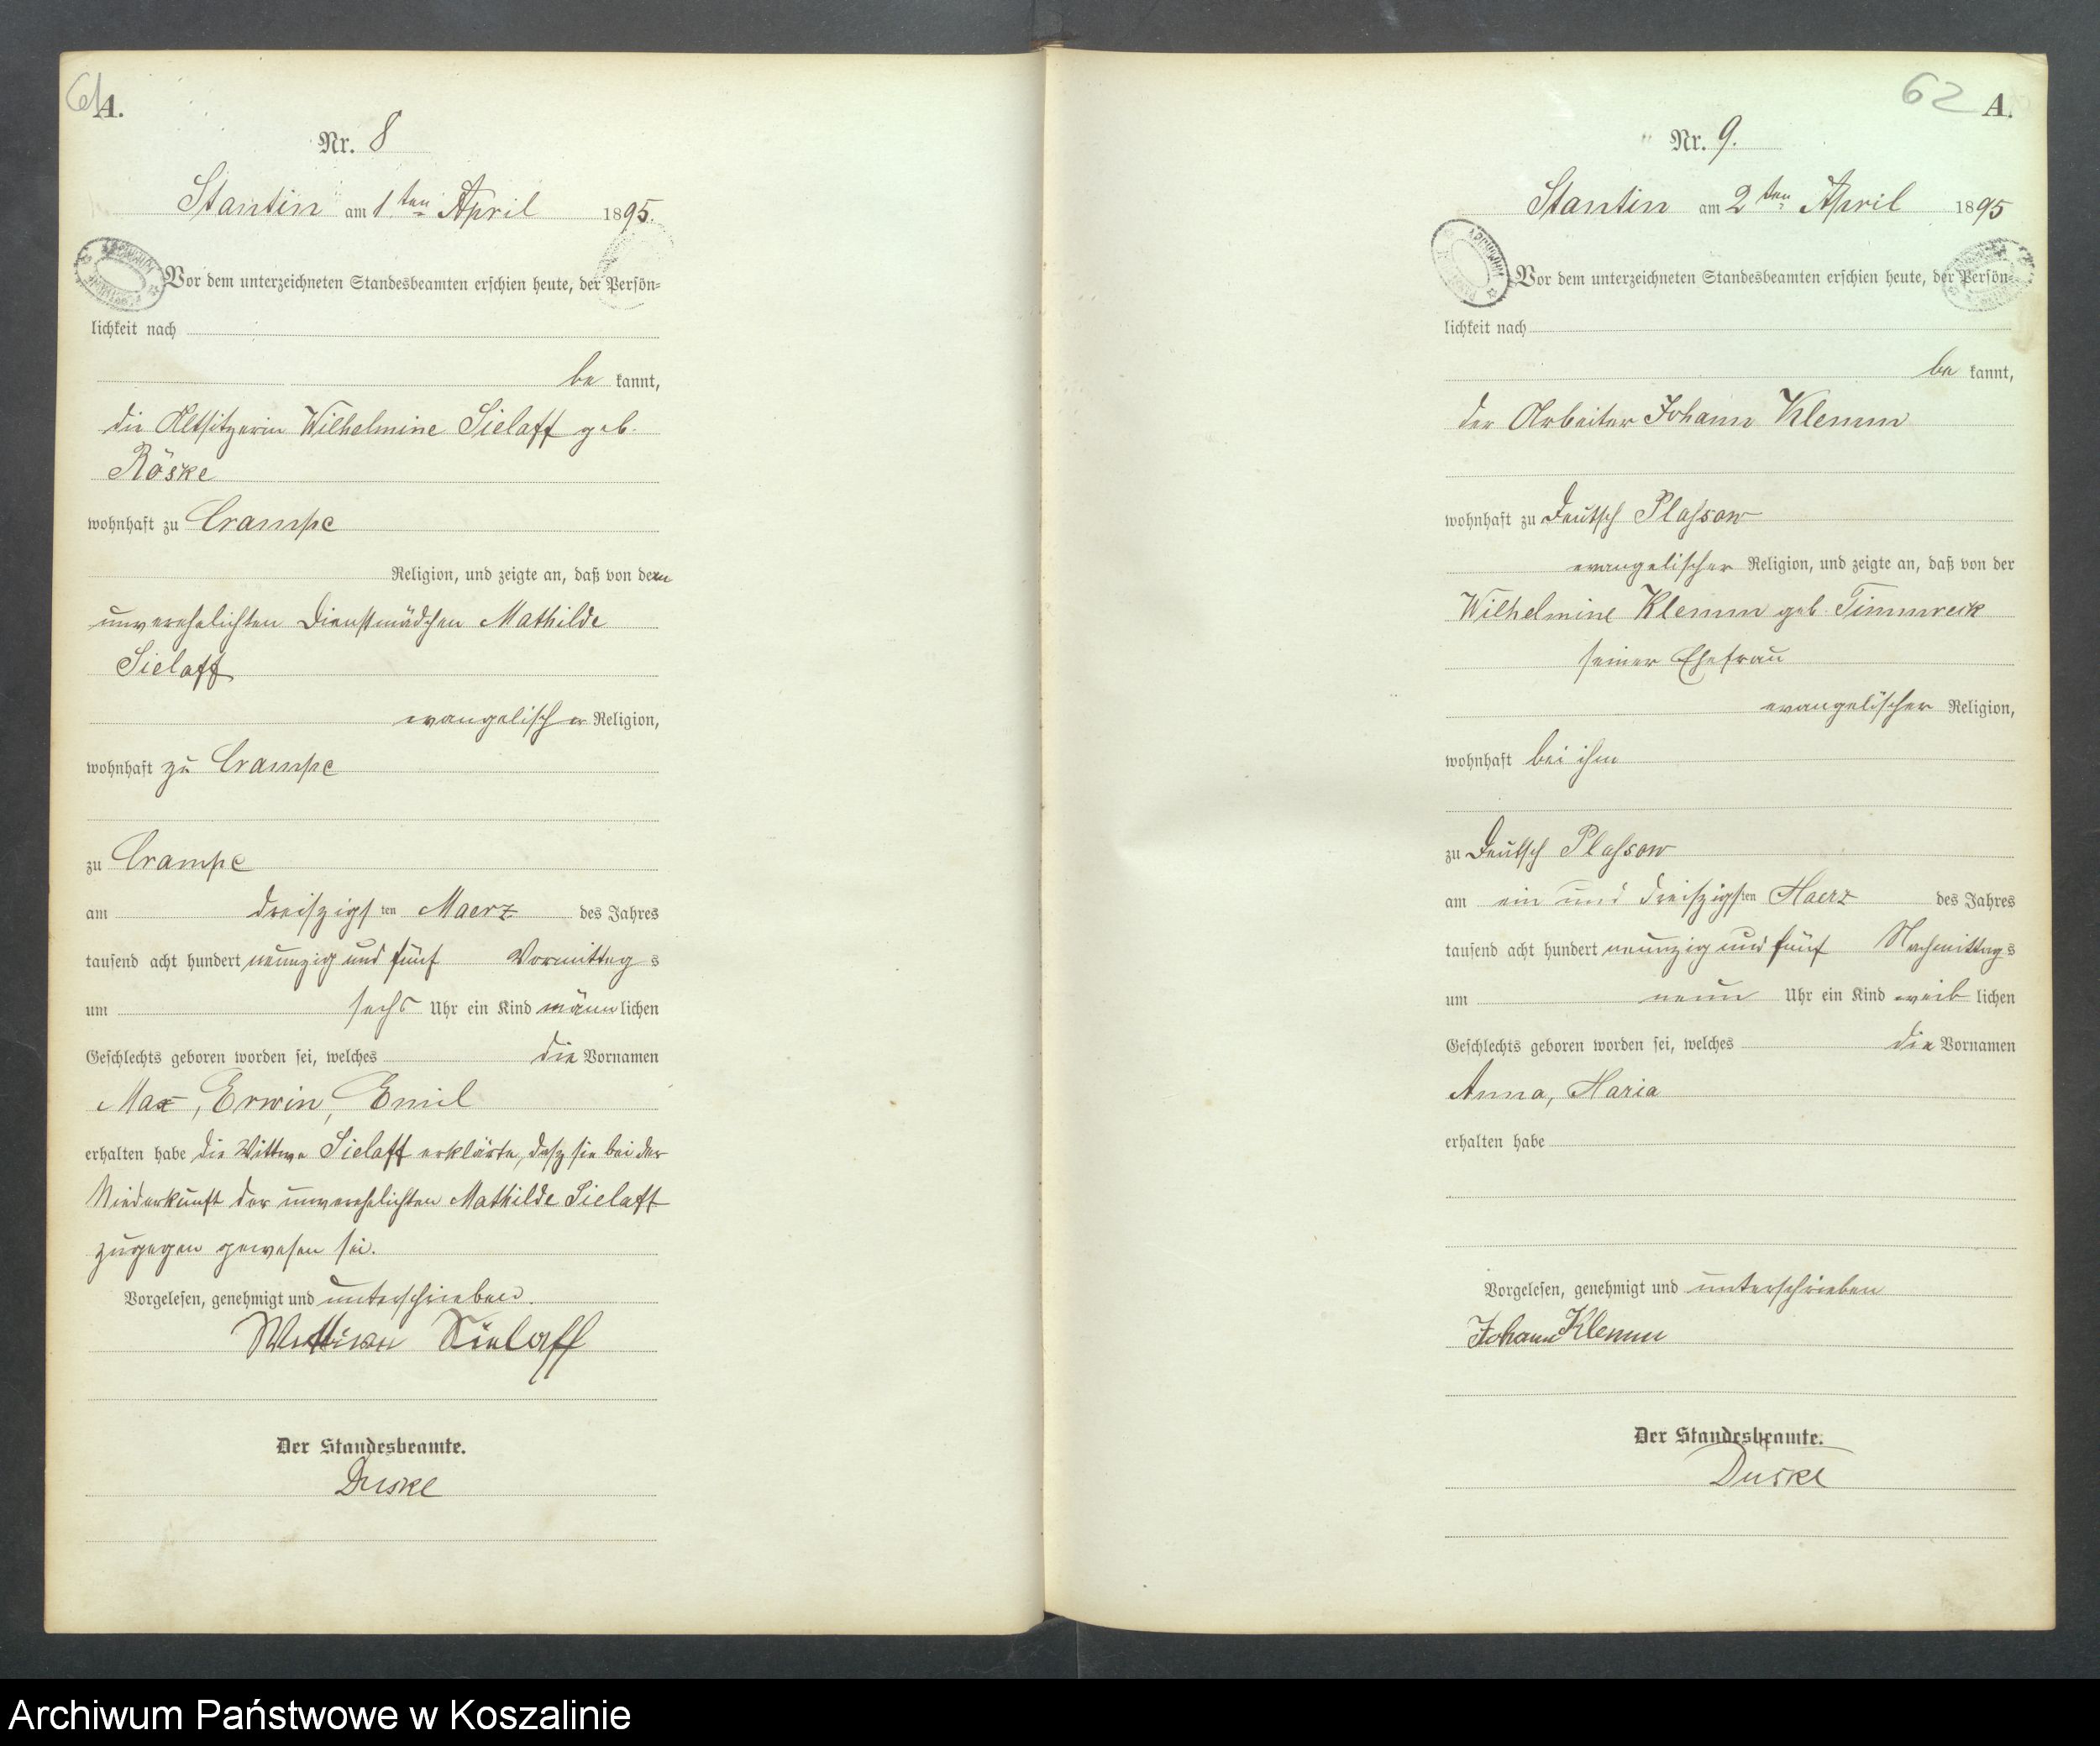 61
A.
Nr. 8
Stantin am 1. ten April 1895.
Vor dem unterzeichneten Standesbeamten erschien heute, der Persön=
lichkeit nach
be kannt,
die Altsitzerin Wilhelmine Sielaff geb.
Röske
wohnhaft zu Crampe
Religion, und zeigte an, daß von der
unverehelichten Dienstmädchen Mathilde
Sielaff
evangelischer Religion,
wohnhaft zu Crampe
zu Crampe
am dreiszigsten Maerz des Jahres
tausend acht hundert neunzig und fünf Vormittags
um sechs Uhr ein Kind männlichen
Geschlechts geboren worden sei, welches die Vornamen
Max, Erwin, Emil
erhalten habe die Wittwe Sielaff erklärte, dasz sie bei der
Niederkunft der unverehelichten Mathilde Sielaff
zugegen gewesen sei.
Vorgelesen, genehmigt und unterschrieben.
Sielaff
Der Standesbeamte.
Duske
62 A.
Nr. 9.
Stantin am 2 ten April 1895
Vor dem unterzeichneten Standesbeamten erschien heute, der Persön=
lichkeit nach
be kannt,
der Arbeiter Johann Klemm
wohnhaft zu Deutsch Plassow
evangelischer Religion, und zeigte an, daß von der
Wilhelmine Klemm geb. Timmreck
seiner Ehefrau
evangelischer Religion,
wohnhaft bei ihm
zu Deutsch Plassow
am ein und dreiszigsten Maerz des Jahres
tausend acht hundert neunzig und fünf Nachmittags
um neun Uhr ein Kind weiblichen
Geschlechts geboren worden sei, welches die Vornamen
Anna, Maria
erhalten habe
Vorgelesen, genehmigt und unterschrieben
Johann Klemm
Der Standesbeamte.
Duske
Archiwum Państwowe w Koszalinie